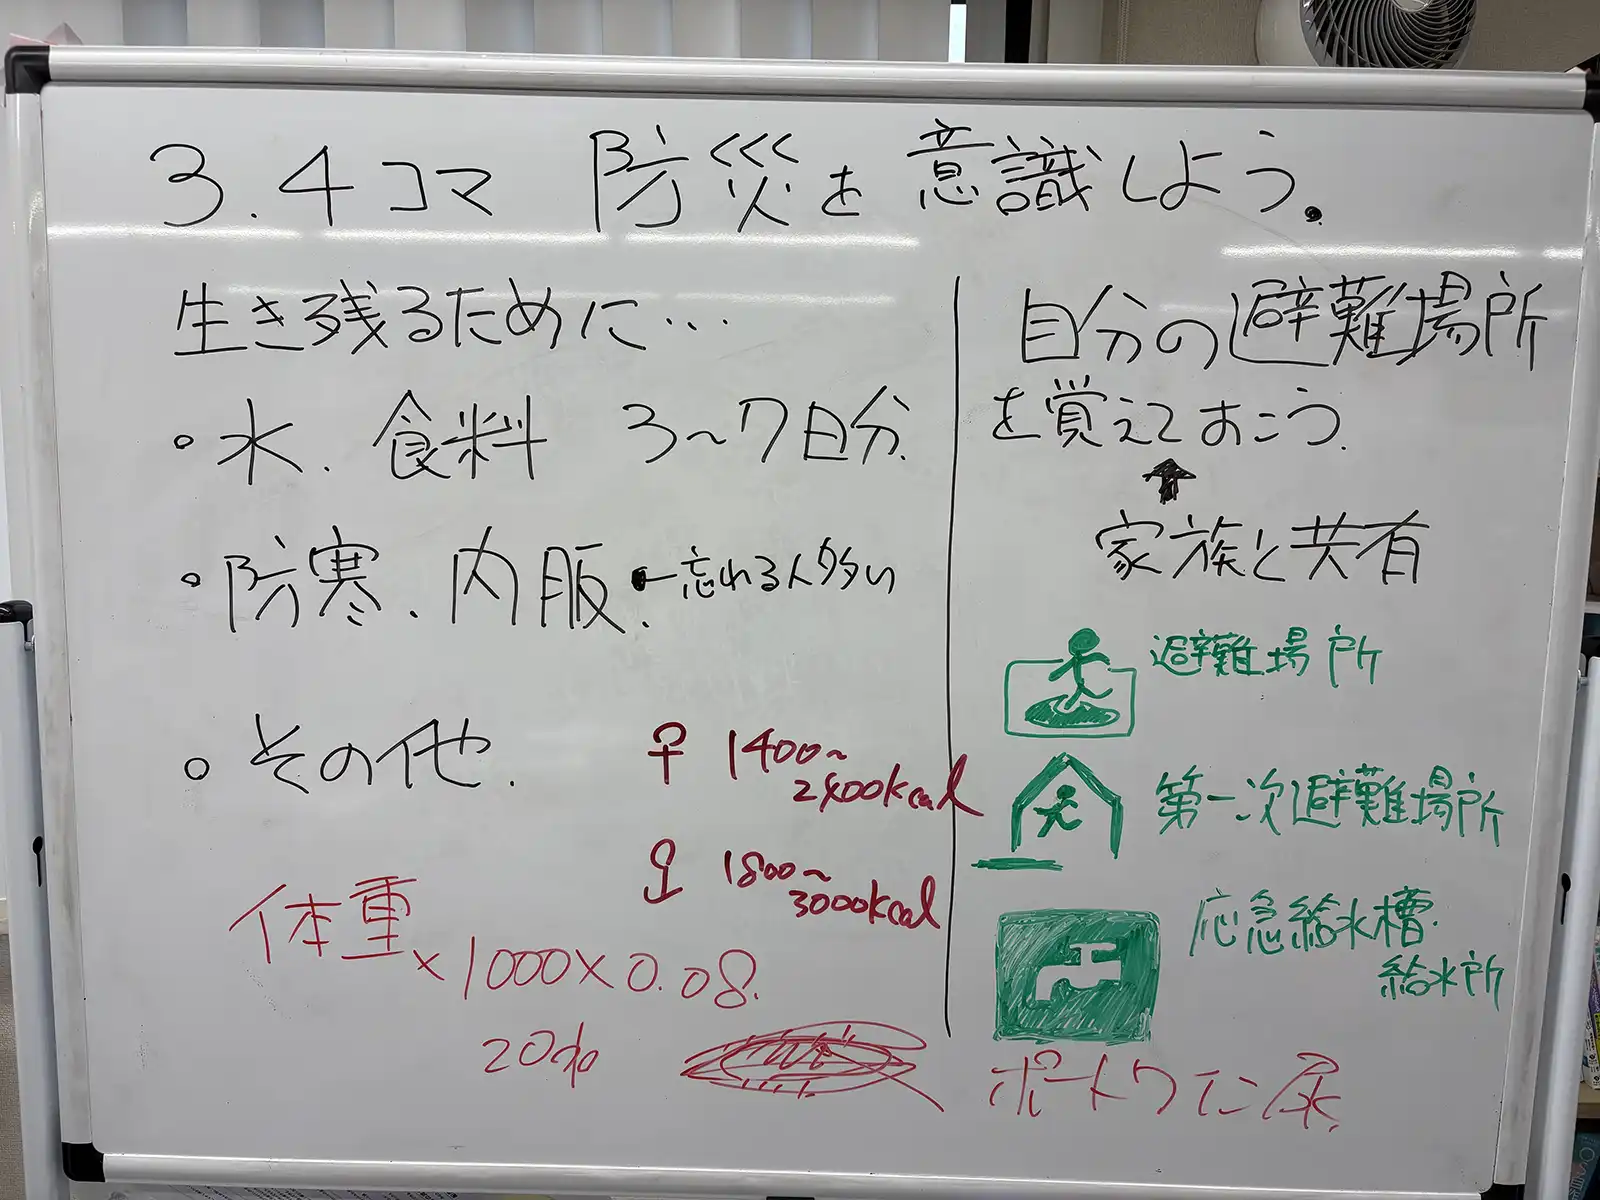 3.4コマ 防災を意識しよう。
生き残るために…
・水、食料 3〜7日分
・防寒、内服 ←忘れる人多い
・その他
♀ 1400〜
2400kcal
1800〜
3000kcal
体重×1000×0.08
20%
自分の避難場所
を覚えておこう
家族と共有
避難場所
第一次避難場所
応急給水槽
給水所
ポートワイン尿